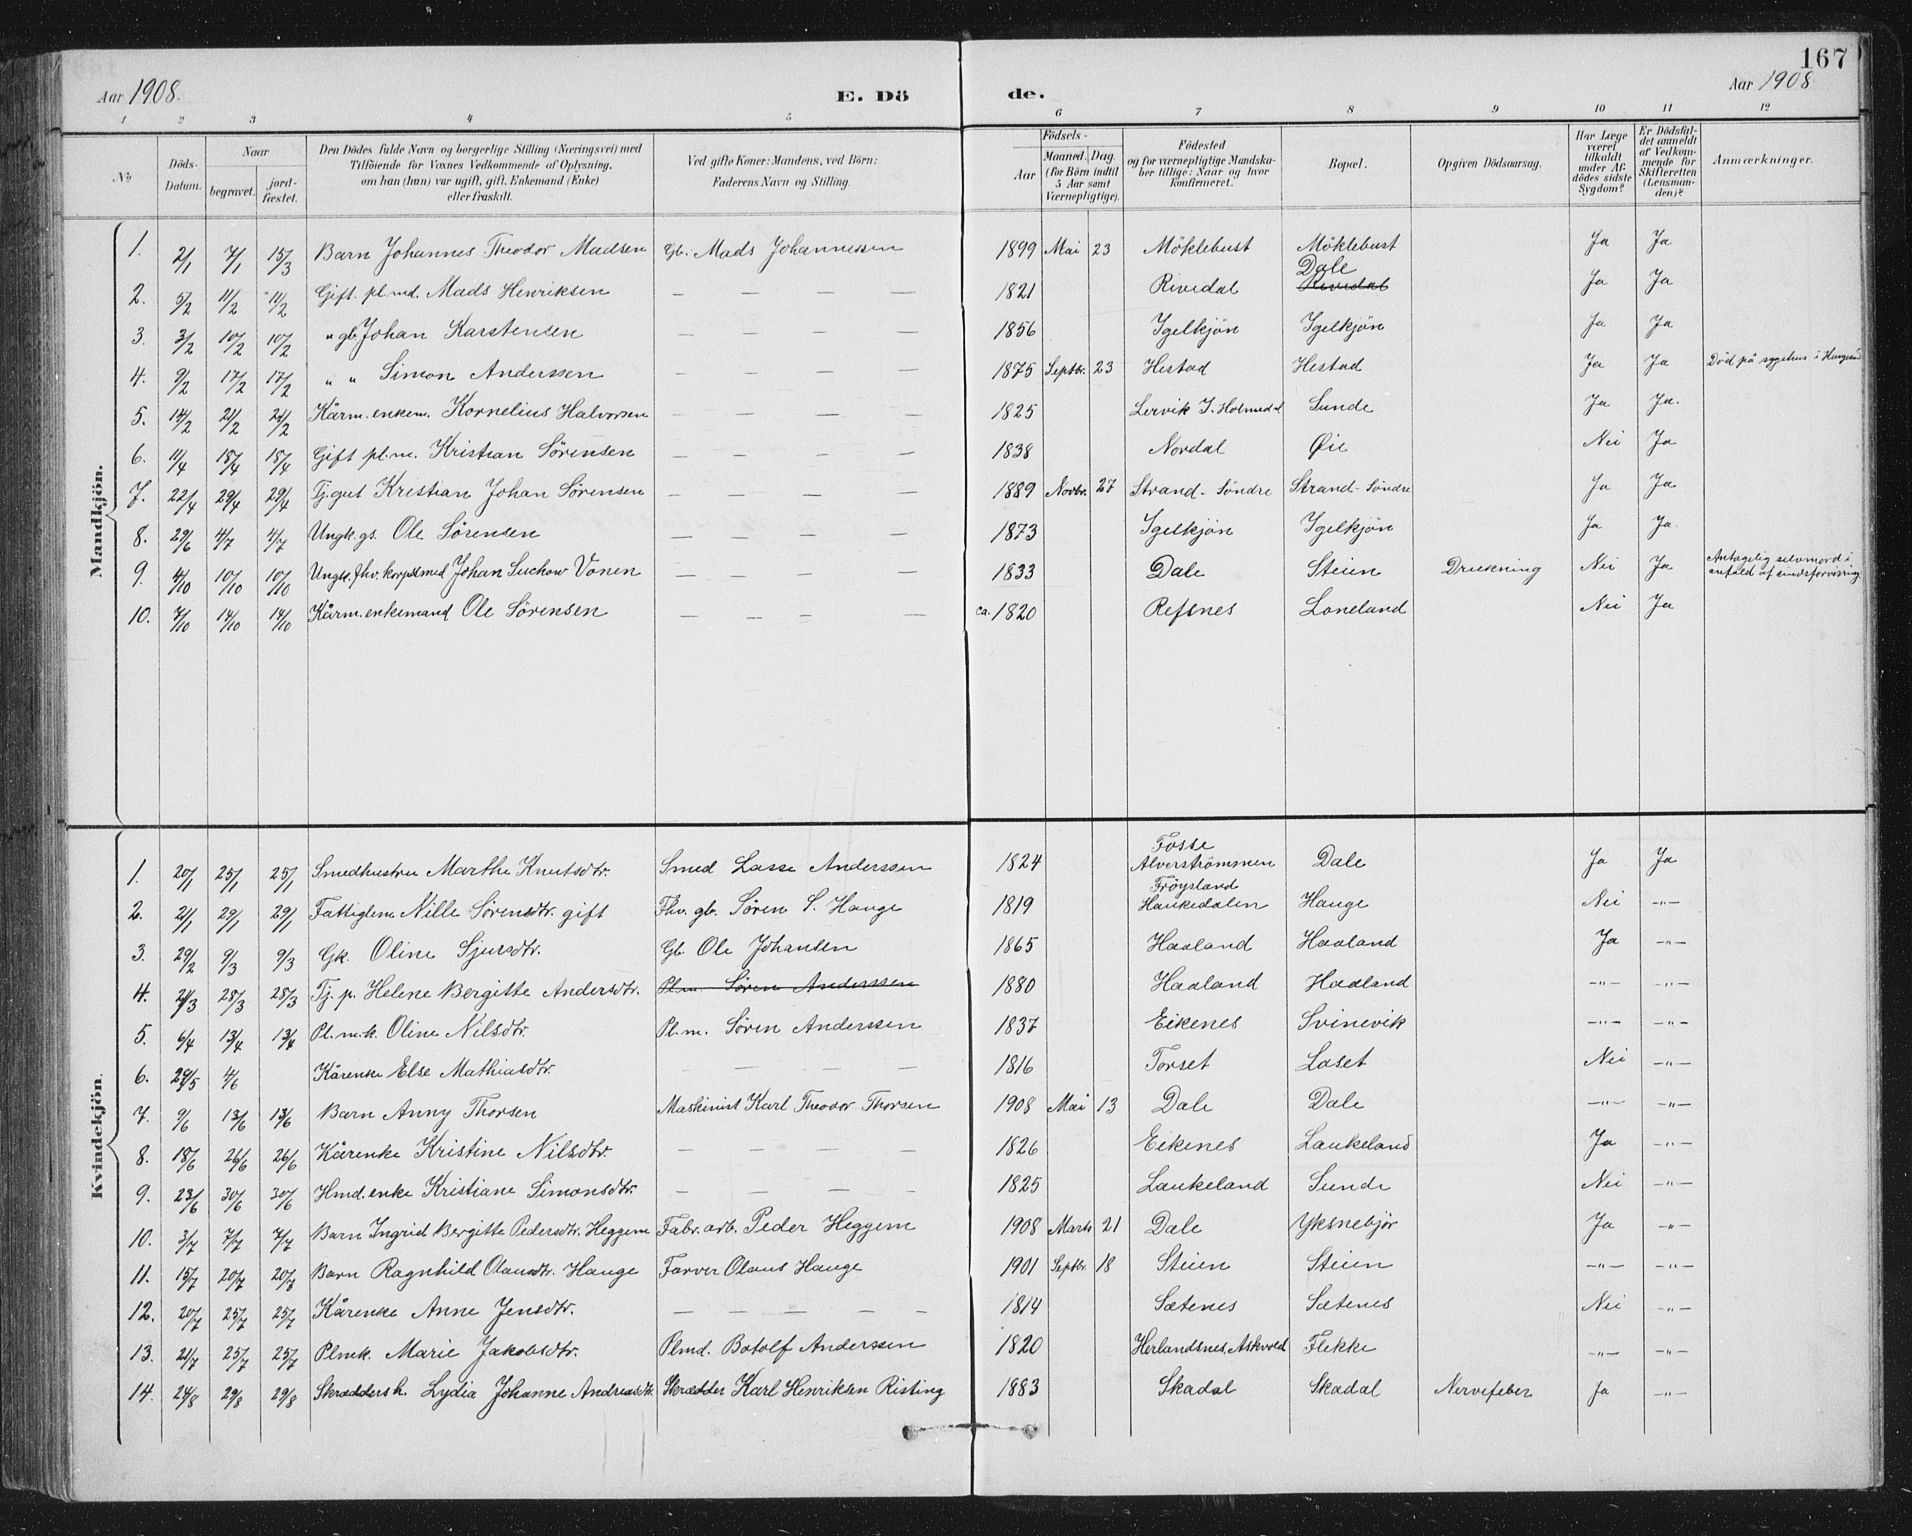 167
Aar 1908.
E. Dö
de.
Aar 1908
1 2 3 4 5 6 7 8 9 10 11 12
No
Döds-Datum.
Naar
begravet.
jord-fæstet.
Den Dödes fulde Navn og borgerlige Stilling (Næringsvei) med
Tilföiende for Voxnes Vedkommende af Oplysning,
om han (hun) var ugift, gift, Enkemand (Enke)
eller fraskilt.
Ved gifte Koner: Mandens, ved Börn:
Faderens Navn og Stilling.
Födsels-
Aar
Maaned. Dag.
(for Börn indtil
5 Aar samt
Værnepligtige).
Födested
og for værnepligtige Mandska-
ber tillige: Naar og hvor
konfirmeret.
Bopæl.
Opgiven Dödsaarsag.
Har Læge
været
tilkaldt
under Af-
dödes sidste
Sygdom?
Er Dödsfal-
det anmeldt
af Vedkom-
mende for
Skifteretten
(Lensman-
den)?
Anmærkninger.
Mandkjön.
1. 2/1 7/1 15/3 Barn Johannes Theodor Madsen Gb. Mads Johannessen 1899 Mai 23 Möklebust Möklebust Ja Ja
2. 5/2 11/2 11/2 Gift. pl.md. Mads Henriksen — — — — 1821 Rividal Dale Rividal Ja Ja
3. 3/2 10/2 10/2 " gb. Johan Karstensen — — — — 1856 Ygelkjön Ygelkjön Ja Ja
4. 9/2 17/2 17/2 " " Simon Anderssen — — — — 1875 Septbr. 23 Hestad Hestad Ja Ja Död på sygehus i
5. 14/2 21/2 21/2 Kårm. enkem. Kornelius Halvorsen — — — — 1825 Lervik Y. Holmedal Sunde Ja Ja.
6. 11/4 18/4 18/4 Gift pl.m. Kristian Sørensen — — — — 1838 Nordal Øie Nei Ja
7. 22/4 29/4 29/4 Tj.gut Kristian Johan Sørensen — — — — 1889 Novbr. 27 Strand-Söndre Strand-Söndre Ja Ja.
8. 29/6 4/7 4/7 Ungk. gs. Ole Sørensen — — — — 1873 Ygelkjön Ygelkjön Ja Ja.
9. 4/10 10/10 10/10 Ungk. fhv. korpslmed Johan Suchow Vonen — — — — 1833 Dale Steien Drukning Nei Ja Antagelig selvmord i
anfald af sindsforvirring.
10. 7/10 14/10 14/10 Kårm. enkemand Ole Sørensen — — — — ca. 1820 Refsnes Loneland Nei Ja
Kvindekjön.
1. 20/1 25/1 25/1 Smedhustru Marthe Knutsdtr. Smed Lasse Anderssen 1824 Fosse Alverströmmen Dale Ja Ja
2. 21/1 29/1 29/1 Fattiglem Nille Sørensdtr. gift Fhv. gb. Søren S. Hauge 1819 Fröysland Haukedalen Hauge Nei —"—
3. 29/2 9/3 9/3 Gk. Oline Sjursdtr. Gb. Ole Johansen 1865 Haaland Haaland Ja —"—
4. 21/3 28/3 28/3 Tj. p. Helene Bergitte Andersdtr. Pl.m Søren Anderssen 1880 Haaland Haaland —"— —"—
5. 6/4 13/4 13/4 Pl.m.k. Oline Nilsdtr. Pl.m. Søren Anderssen 1837 Eikenes Svinevik —"— —"—
6. 29/5 4/6 Kårenke Else Mathiasdtr. — — — — 1816 Torset Laset Nei —"—
7. 9/6 13/6 13/6 Barn Anny Thorsen Maskinist Karl Theodor Thorsen 1908 Mai 13 Dale Dale —"— —"—
8. 18/6 26/6 26/6 Kårenke Kristine Nilsdtr. — — — — 1826 Eikenes Laukeland Ja —"—
9. 23/6 30/6 30/6 Hmd. enke Kristiane Simonsdtr. — — — — 1825 Laukeland Sunde Nei —"—
10. 3/7 7/7 7/7 Barn Ingrid Bergitte Pedersdtr. Heggem Fabr. arb. Peder Heggem 1908 Marts 21 Dale Yksnebjör Ja —"—
11. 15/7 20/7 20/7 Barn Ragnhild Olausdtr. Hauge Farver Olaus Hauge 1901 Septbr. 18 Steien Steien —"— —"—
12. 20/7 25/7 25/7 Kårenke Anne Jensdtr. — — — — — 1814 Sætenes Sætenes Nei —"—
13. 21/7 25/7 25/7 Plmk. Marie Jakobsdtr. Plmd. Botolf Anderssen 1820 Herlandsnes, Askvold Flekke —"— —"—
14. 24/8 29/8 29/8 Skræddersh. Lydia Johanne Andreasdtr. Skrædder Karl Henriksen Risting 1883 Skadal Skadal Nervefeber Ja —"—